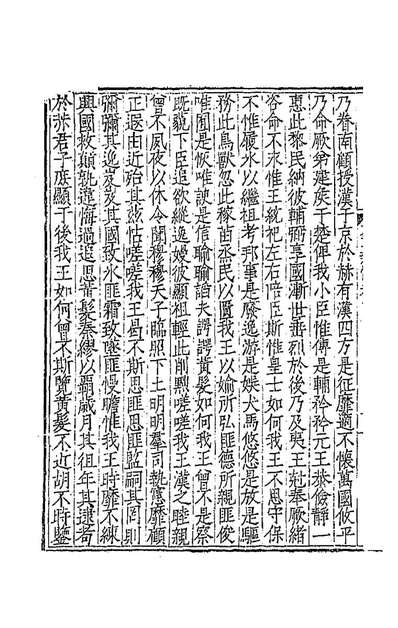 乃眷南顧授漢于京於赫有漢四方是征靡適不懷萬國攸平
乃命厥弟建侯于楚俾我小臣惟傅是輔矜矜元王恭儉靜一
惠此黎民納彼輔弼享國漸世垂烈於後乃及夷王尅奉厥緒
咨命不永惟王統祀左右陪臣斯惟皇士如何我王不思守保
不惟履冰以繼祖考邦事是廢逸游是娛犬馬悠悠是放是驅
務此鳥獸忽此稼苗烝民以匱我王以媮所弘匪德所親匪俊
唯囿是恢唯諛是信睮睮諂夫諤諤黃髮如何我王曾不是察
既藐下臣追欲縱逸嫚彼顯祖輕此削黜嗟嗟我王漢之睦親
曾不夙夜以休令聞穆穆天子臨照下土明明羣司執憲靡顧
正遐由近殆其茲怙嗟嗟我王曷不斯思匪思匪監嗣其罔則
彌彌其逸岌岌其國致冰匪霜致墜匪慢瞻惟我王時靡不練
興國救顛孰違悔過追思黃髮秦繆以霸歲月其徂年其逮耇
於赤君子庶顯于後我王如何曾不斯覽黃髮不近胡不時鑒